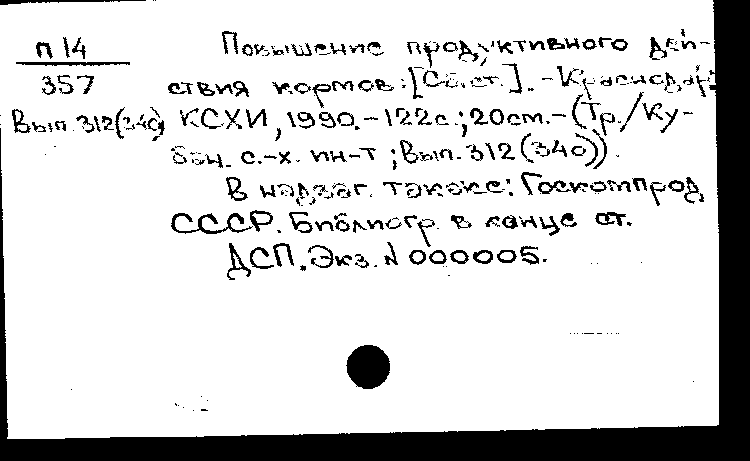 П 14
357
Вып. 312(340)
Повышение продуктивного дей-
ствия кормов: [Сб. ст.]. - Краснодар:
КСХИ, 1990. - 122 с.; 20 см. - (Тр./Ку-
бан. с.-х. ин-т; Вып. 312 (340)).
В надзаг. также: Госкомпрод
СССР. Библиогр. в конце ст.
ДСП. Экз. N 000005.